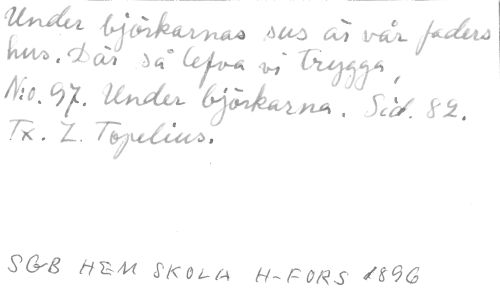 Under björkarnas sus är vår faders
hus. Där så lefva vi trygga,
N:o. 97. Under björkarna. Sid. 82.
Tx. Z. Topelius.
SGB HEM SKOLA H-FORS 1896